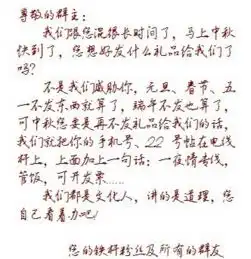 尊敬的群主：
我们跟您混很长时间了，马上中秋
快到了，您想好发什么礼品给我们了
吗？
不是我们威胁你，元旦、春节、五
一不发东西就算了，端午不发也算了，
可中秋您要是再不发礼品给我们的话，
我们就把你的手机号、QQ号帖在电线
杆上，上面加上一句话：一夜情专线，
管饭，可开发票……
我们都是文化人，讲的是道理，您
自己看着办吧！
您的铁杆粉丝及所有的群友